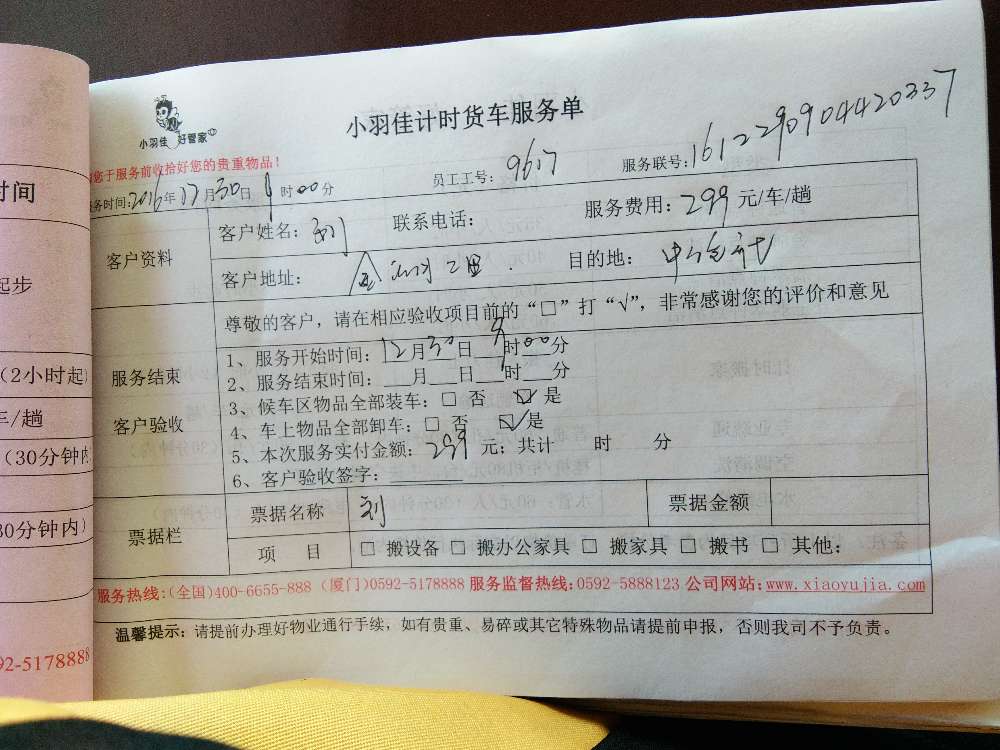 小羽佳 好管家
小羽佳计时货车服务单
您于服务前收拾好您的贵重物品！
员工工号：9617
服务联号：1612290904420337
务时间:2016年12月30日9时00分
客户资料
客户姓名：刘 联系电话： 服务费用：299元/车/趟
客户地址： 目的地：
尊敬的客户，请在相应验收项目前的“□”打“√”，非常感谢您的评价和意见
服务结束
客户验收
1、服务开始时间：12月30日9时00分
2、服务结束时间：___月___日___时___分
3、候车区物品全部装车：□ 否 ☑ 是
4、车上物品全部卸车：□ 否 ☑ 是
5、本次服务实付金额：299元；共计 时 分
6、客户验收签字：
票据栏
票据名称 刘 票据金额
项 目 □ 搬设备 □ 搬办公家具 □ 搬家具 □ 搬书 □ 其他：
服务热线:(全国)400-6655-888 (厦门)0592-5178888 服务监督热线:0592-5888123 公司网站:www.xiaoyujia.com
温馨提示：请提前办理好物业通行手续，如有贵重、易碎或其它特殊物品请提前申报，否则我司不予负责。
时间
起步
(2小时起)
车/趟
(30分钟内
30分钟内)
92-5178888